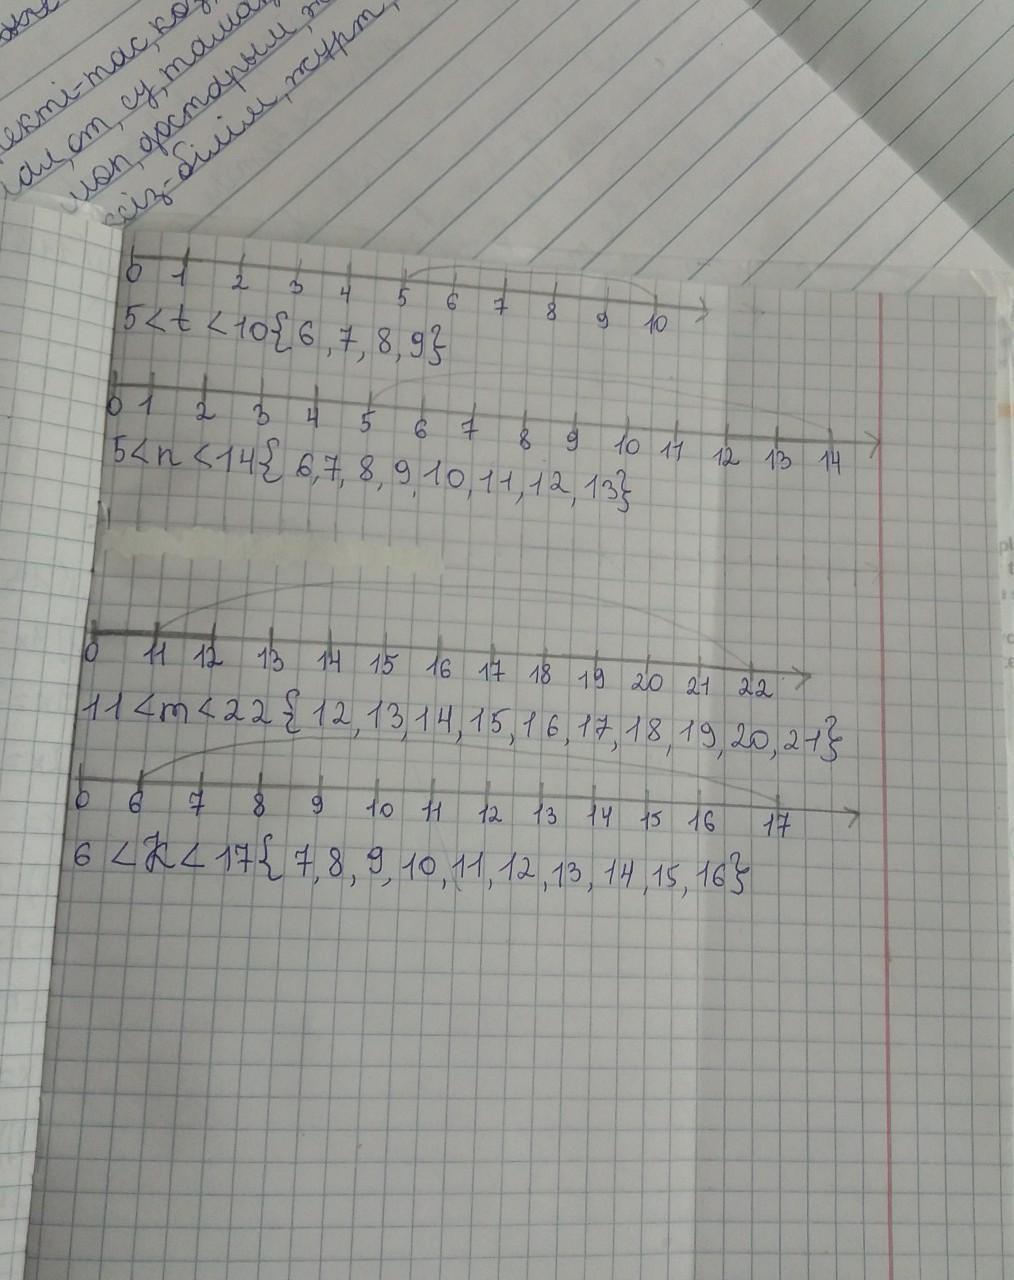 екті-тас, қоз
ал, ет, су, тамақ
достарым,
сіз-білім, жұрт,
0 1 2 3 4 5 6 7 8 9 10
5<t<10{6,7,8,9}
0 1 2 3 4 5 6 7 8 9 10 11 12 13 14
5<n<14{6,7,8,9,10,11,12,13}
0 11 12 13 14 15 16 17 18 19 20 21 22
11<m<22{12,13,14,15,16,17,18,19,20,21}
0 6 7 8 9 10 11 12 13 14 15 16 17
6<K<17{7,8,9,10,11,12,13,14,15,16}